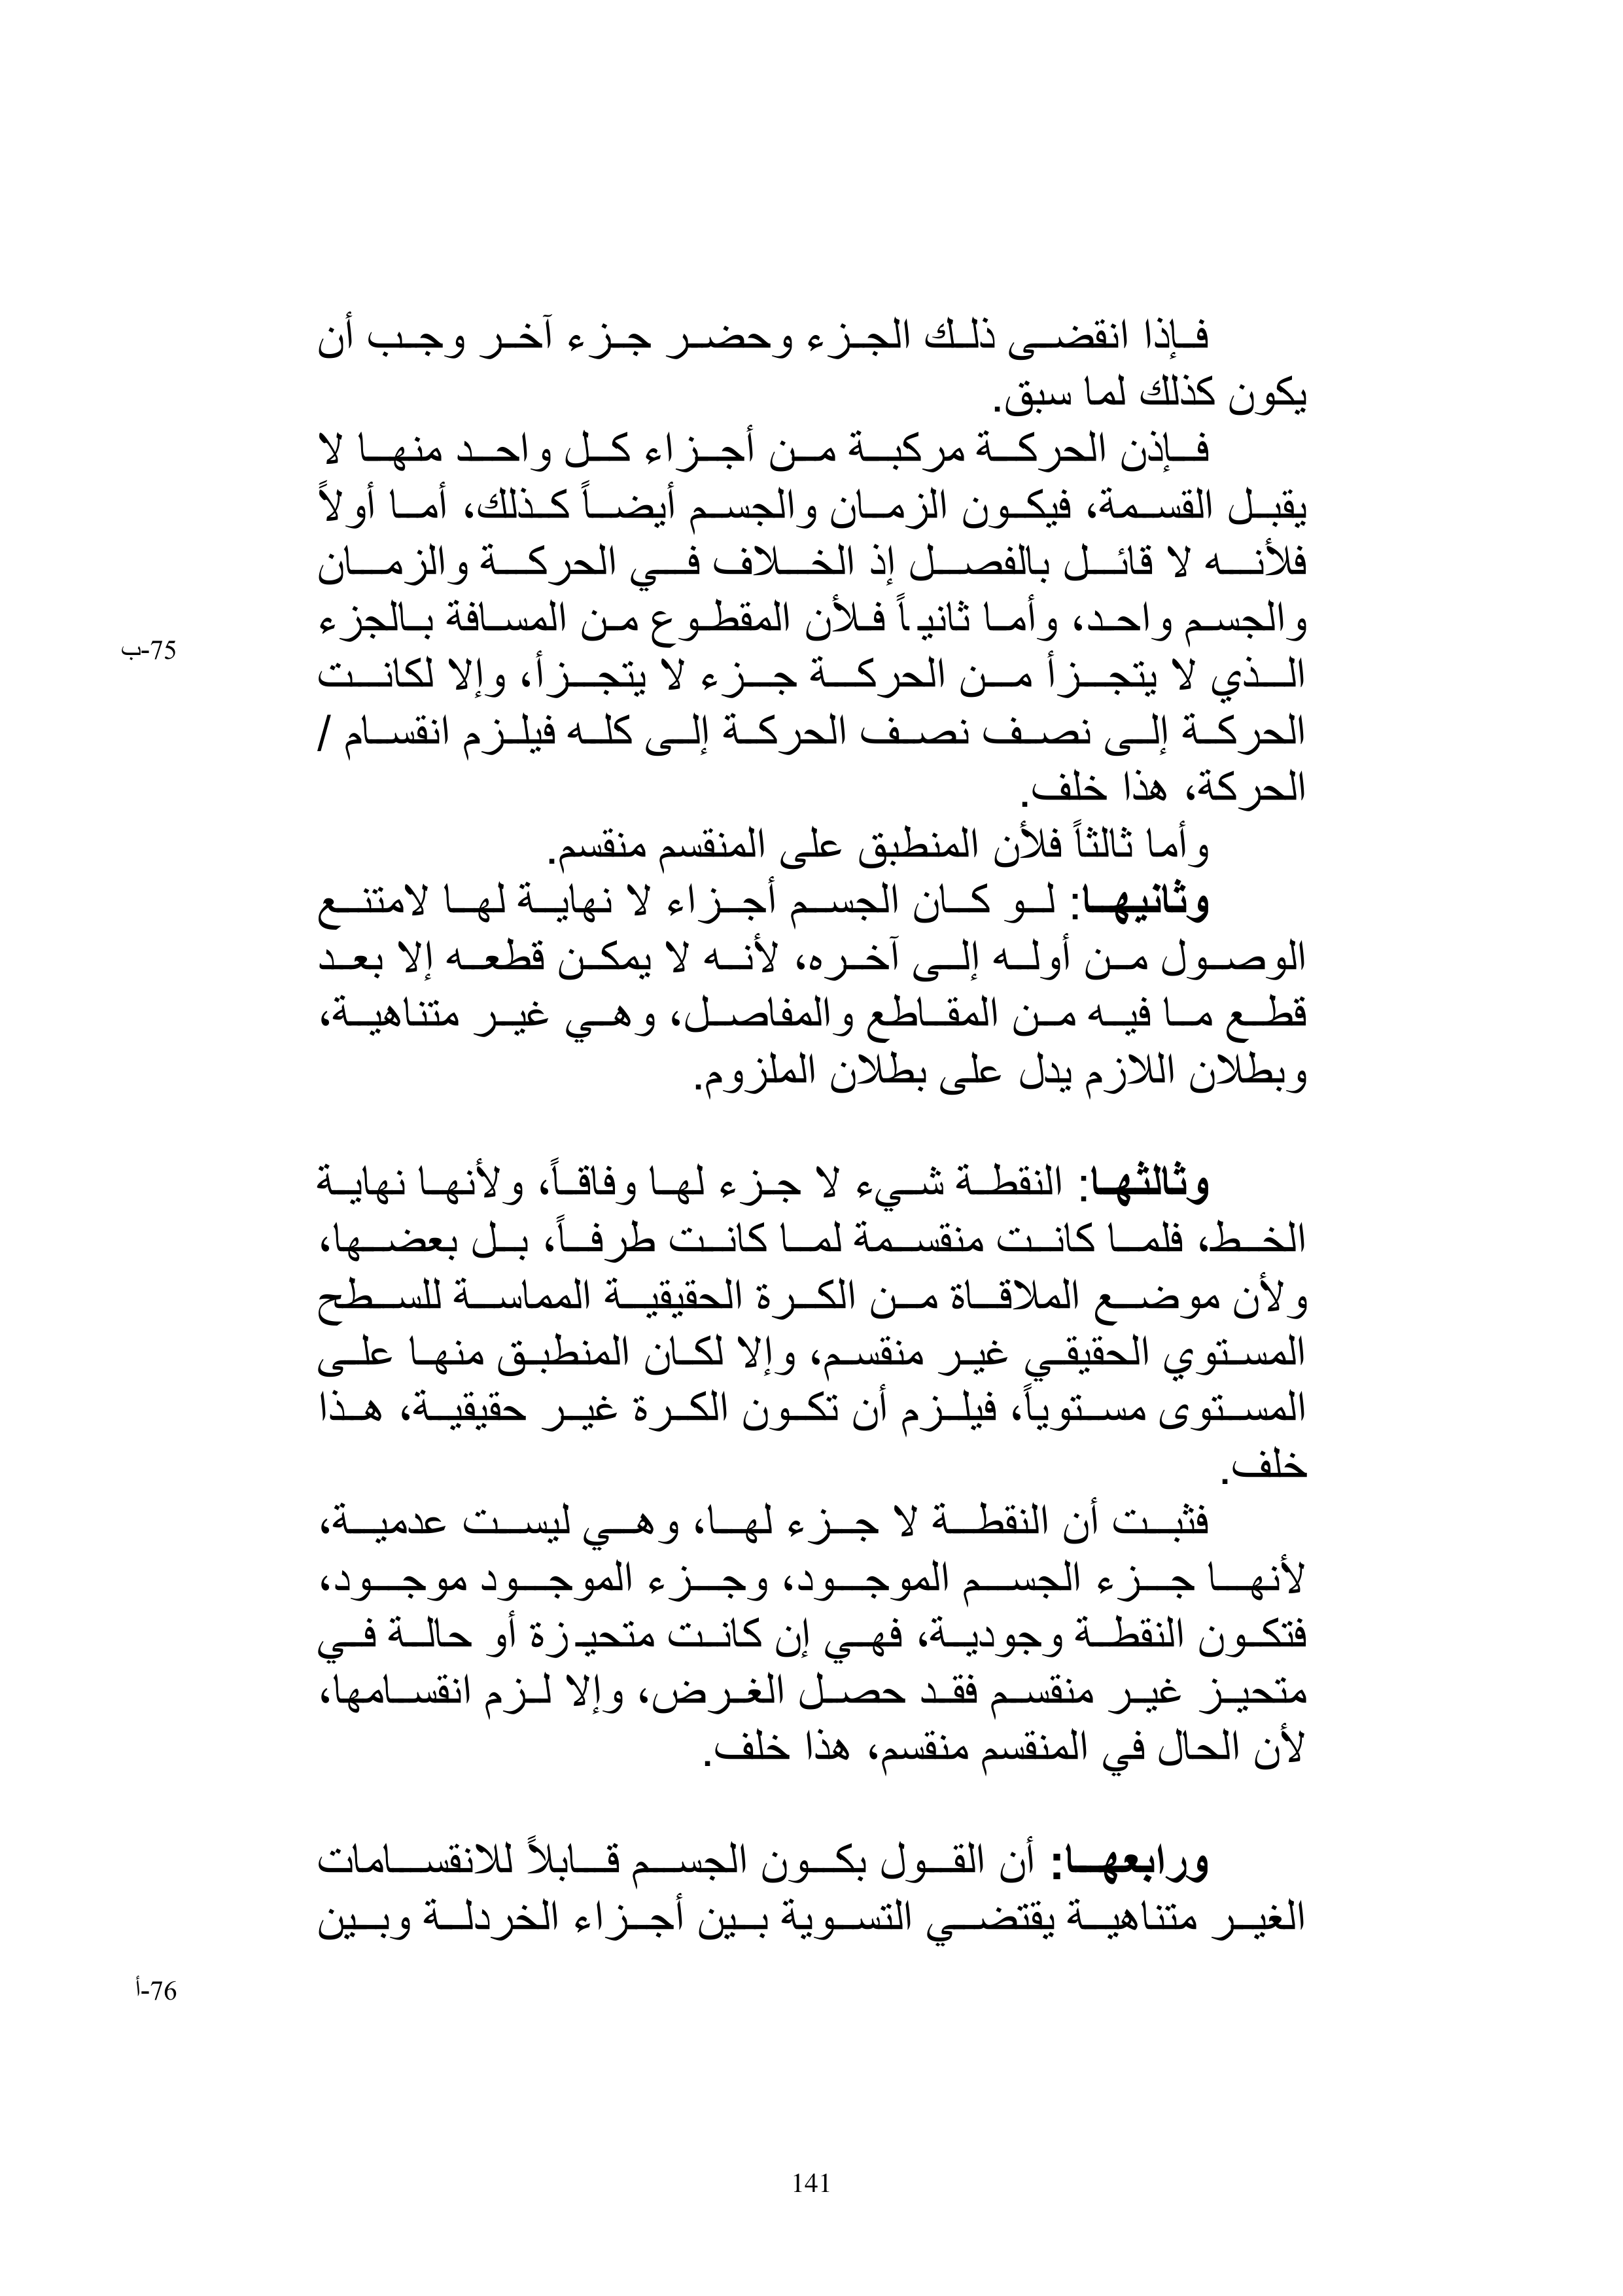 فإذا انقضى ذلك الجزء وحضر جزء آخر وجب أن
يكون كذلك لما سبق.
فإذن الحركة مركبة من أجزاء كل واحد منها لا
يقبل القسمة، فيكون الزمان والجسم أيضاً كذلك، أما أولاً
فلأنه لا قائل بالفصل إذ الخلاف في الحركة والزمان
والجسم واحد، وأما ثانياً فلأن المقطوع من المسافة بالجزء
75-ب
الذي لا يتجزأ من الحركة جزء لا يتجزأ، وإلا لكانت
الحركة إلى نصف نصف الحركة إلى كله فيلزم انقسام /
الحركة، هذا خلف.
وأما ثالثاً فلأن المنطبق على المنقسم منقسم.
وثانيها: لو كان الجسم أجزاء لا نهاية لها لامتنع
الوصول من أوله إلى آخره، لأنه لا يمكن قطعه إلا بعد
قطع ما فيه من المقاطع والمفاصل، وهي غير متناهية،
وبطلان اللازم يدل على بطلان الملزوم.
وثالثها: النقطة شيء لا جزء لها وفاقاً، ولأنها نهاية
الخط، فلما كانت منقسمة لما كانت طرفاً، بل بعضها،
ولأن موضع الملاقاة من الكرة الحقيقية المماسة للسطح
المستوي الحقيقي غير منقسم، وإلا لكان المنطبق منها على
المستوى مستوياً، فيلزم أن تكون الكرة غير حقيقية، هذا
خلف.
فثبت أن النقطة لا جزء لها، وهي ليست عدمية،
لأنها جزء الجسم الموجود، وجزء الموجود موجود،
فتكون النقطة وجودية، فهي إن كانت متحيزة أو حالة في
متحيز غير منقسم فقد حصل الغرض، وإلا لزم انقسامها،
لأن الحال في المنقسم منقسم، هذا خلف.
ورابعها: أن القول بكون الجسم قابلاً للانقسامات
الغير متناهية يقتضي التسوية بين أجزاء الخردلة وبين
76-أ
141